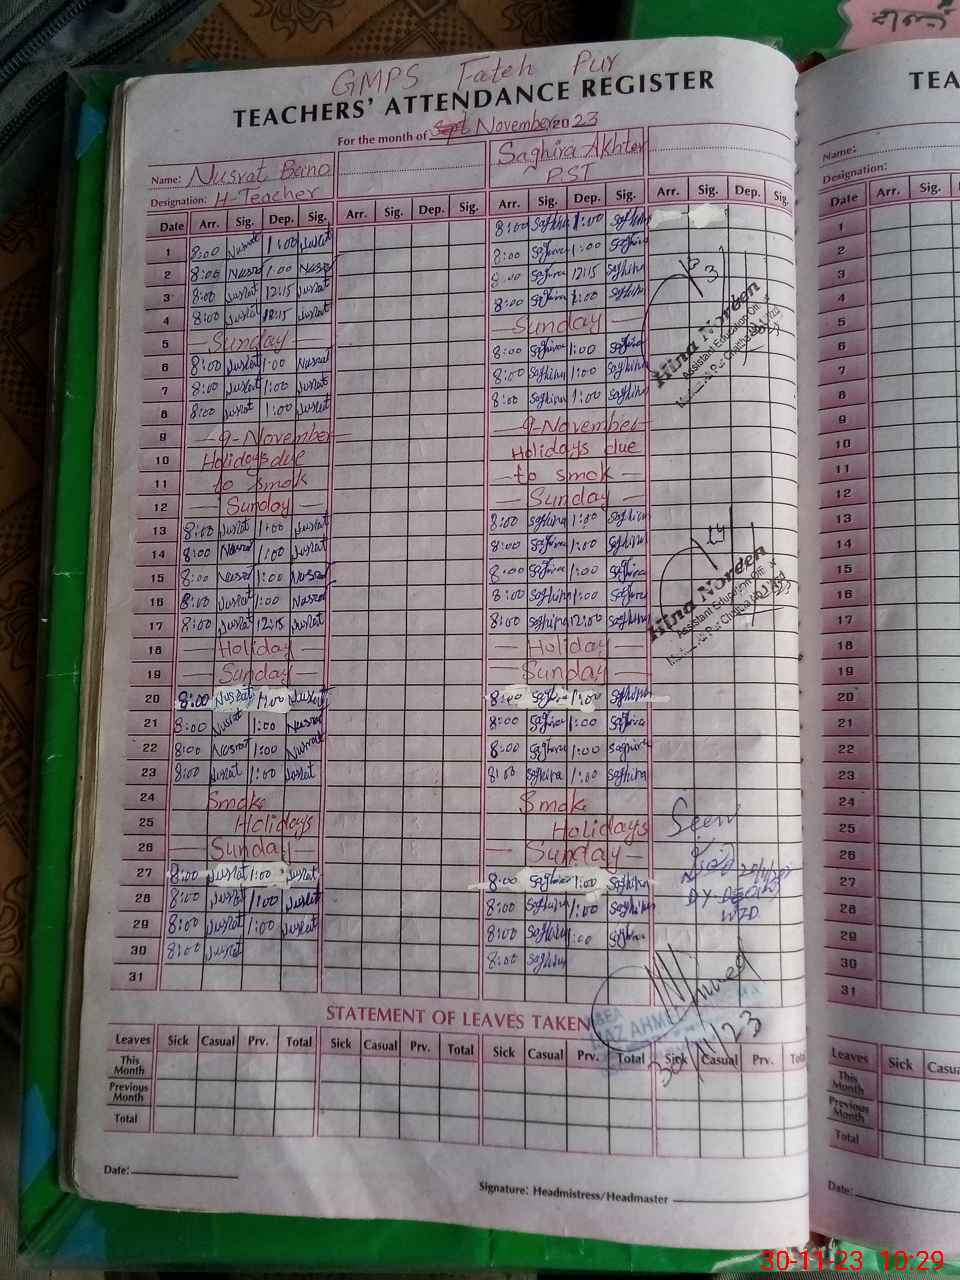 GMPS Fateh Pur
TEACHERS' ATTENDANCE REGISTER
For the month of Sept November 2023
Name: Nusrat Bano Saghira Akhter
Designation: H-Teacher PST
Date Arr. Sig. Dep. Sig. Arr. Sig. Dep. Sig. Arr. Sig. Dep. Sig. Arr. Sig. Dep. Sig.
8:00 Saghira 1:00 Saghira
1 8:00 Nusrat 1:00 Nusrat 8:00 Saghira 1:00 Saghira
2 8:00 Nusrat 1:00 Nusrat 8:00 Saghira 12:15 Saghira
3 8:00 Nusrat 12:15 Nusrat 8:00 Saghira 1:00 Saghira
4 8:00 Nusrat 12:15 Nusrat — Sunday —
5 — Sunday — 8:00 Saghira 1:00 Saghira
6 8:00 Nusrat 1:00 Nusrat 8:00 Saghira 1:00 Saghira
7 8:00 Nusrat 1:00 Nusrat 8:00 Saghira 1:00 Saghira
8 8:00 Nusrat 1:00 Nusrat
9 — 9-November — 9-November —
10 Holidays due Holidays due
11 to smok — to smok —
12 — Sunday — — Sunday —
13 8:00 Nusrat 1:00 Nusrat 8:00 Saghira 1:00 Saghira
14 8:00 Nusrat 1:00 Nusrat 8:00 Saghira 1:00 Saghira
15 8:00 Nusrat 1:00 Nusrat 8:00 Saghira 1:00 Saghira
16 8:00 Nusrat 1:00 Nusrat 8:00 Saghira 1:00 Saghira
17 8:00 Nusrat 12:15 Nusrat 8:00 Saghira 12:00 Saghira
18 — Holiday — — Holiday —
19 — Sunday — — Sunday —
20 8:00 Nusrat 1:00 Nusrat 8:00 Saghira 1:00 Saghira
21 8:00 Nusrat 1:00 Nusrat 8:00 Saghira 1:00 Saghira
22 8:00 Nusrat 1:00 Nusrat 8:00 Saghira 1:00 Saghira
23 8:00 Nusrat 1:00 Nusrat 8:00 Saghira 1:00 Saghira
24 Smok Smok
25 Holidays Holidays
26 — Sunday — — Sunday —
27 8:00 Nusrat 1:00 Nusrat 8:00 Saghira 1:00 Saghira
28 8:00 Nusrat 1:00 Nusrat 8:00 Saghira 1:00 Saghira
29 8:00 Nusrat 1:00 Nusrat 8:00 Saghira 1:00 Saghira
30 8:00 Nusrat 8:00 Saghira
31
Hina Noreen
Assistant Education Officer
Hina Noreen
Assistant Education Officer
Seen
AZ AHMED
30/11/23
STATEMENT OF LEAVES TAKEN
Leaves Sick Casual Prv. Total Sick Casual Prv. Total Sick Casual Prv. Total Sick Casual Prv. Total
This Month
Previous Month
Total
Date:
Signature: Headmistress/Headmaster
TEA
Name:
Designation:
Date Arr. Sig.
1
2
3
4
5
6
7
8
9
10
11
12
13
14
15
16
17
18
19
20
21
22
23
24
25
26
27
28
29
30
31
Leaves Sick Casua
This Month
Previous Month
Total
Date:
30-11-23 10:29